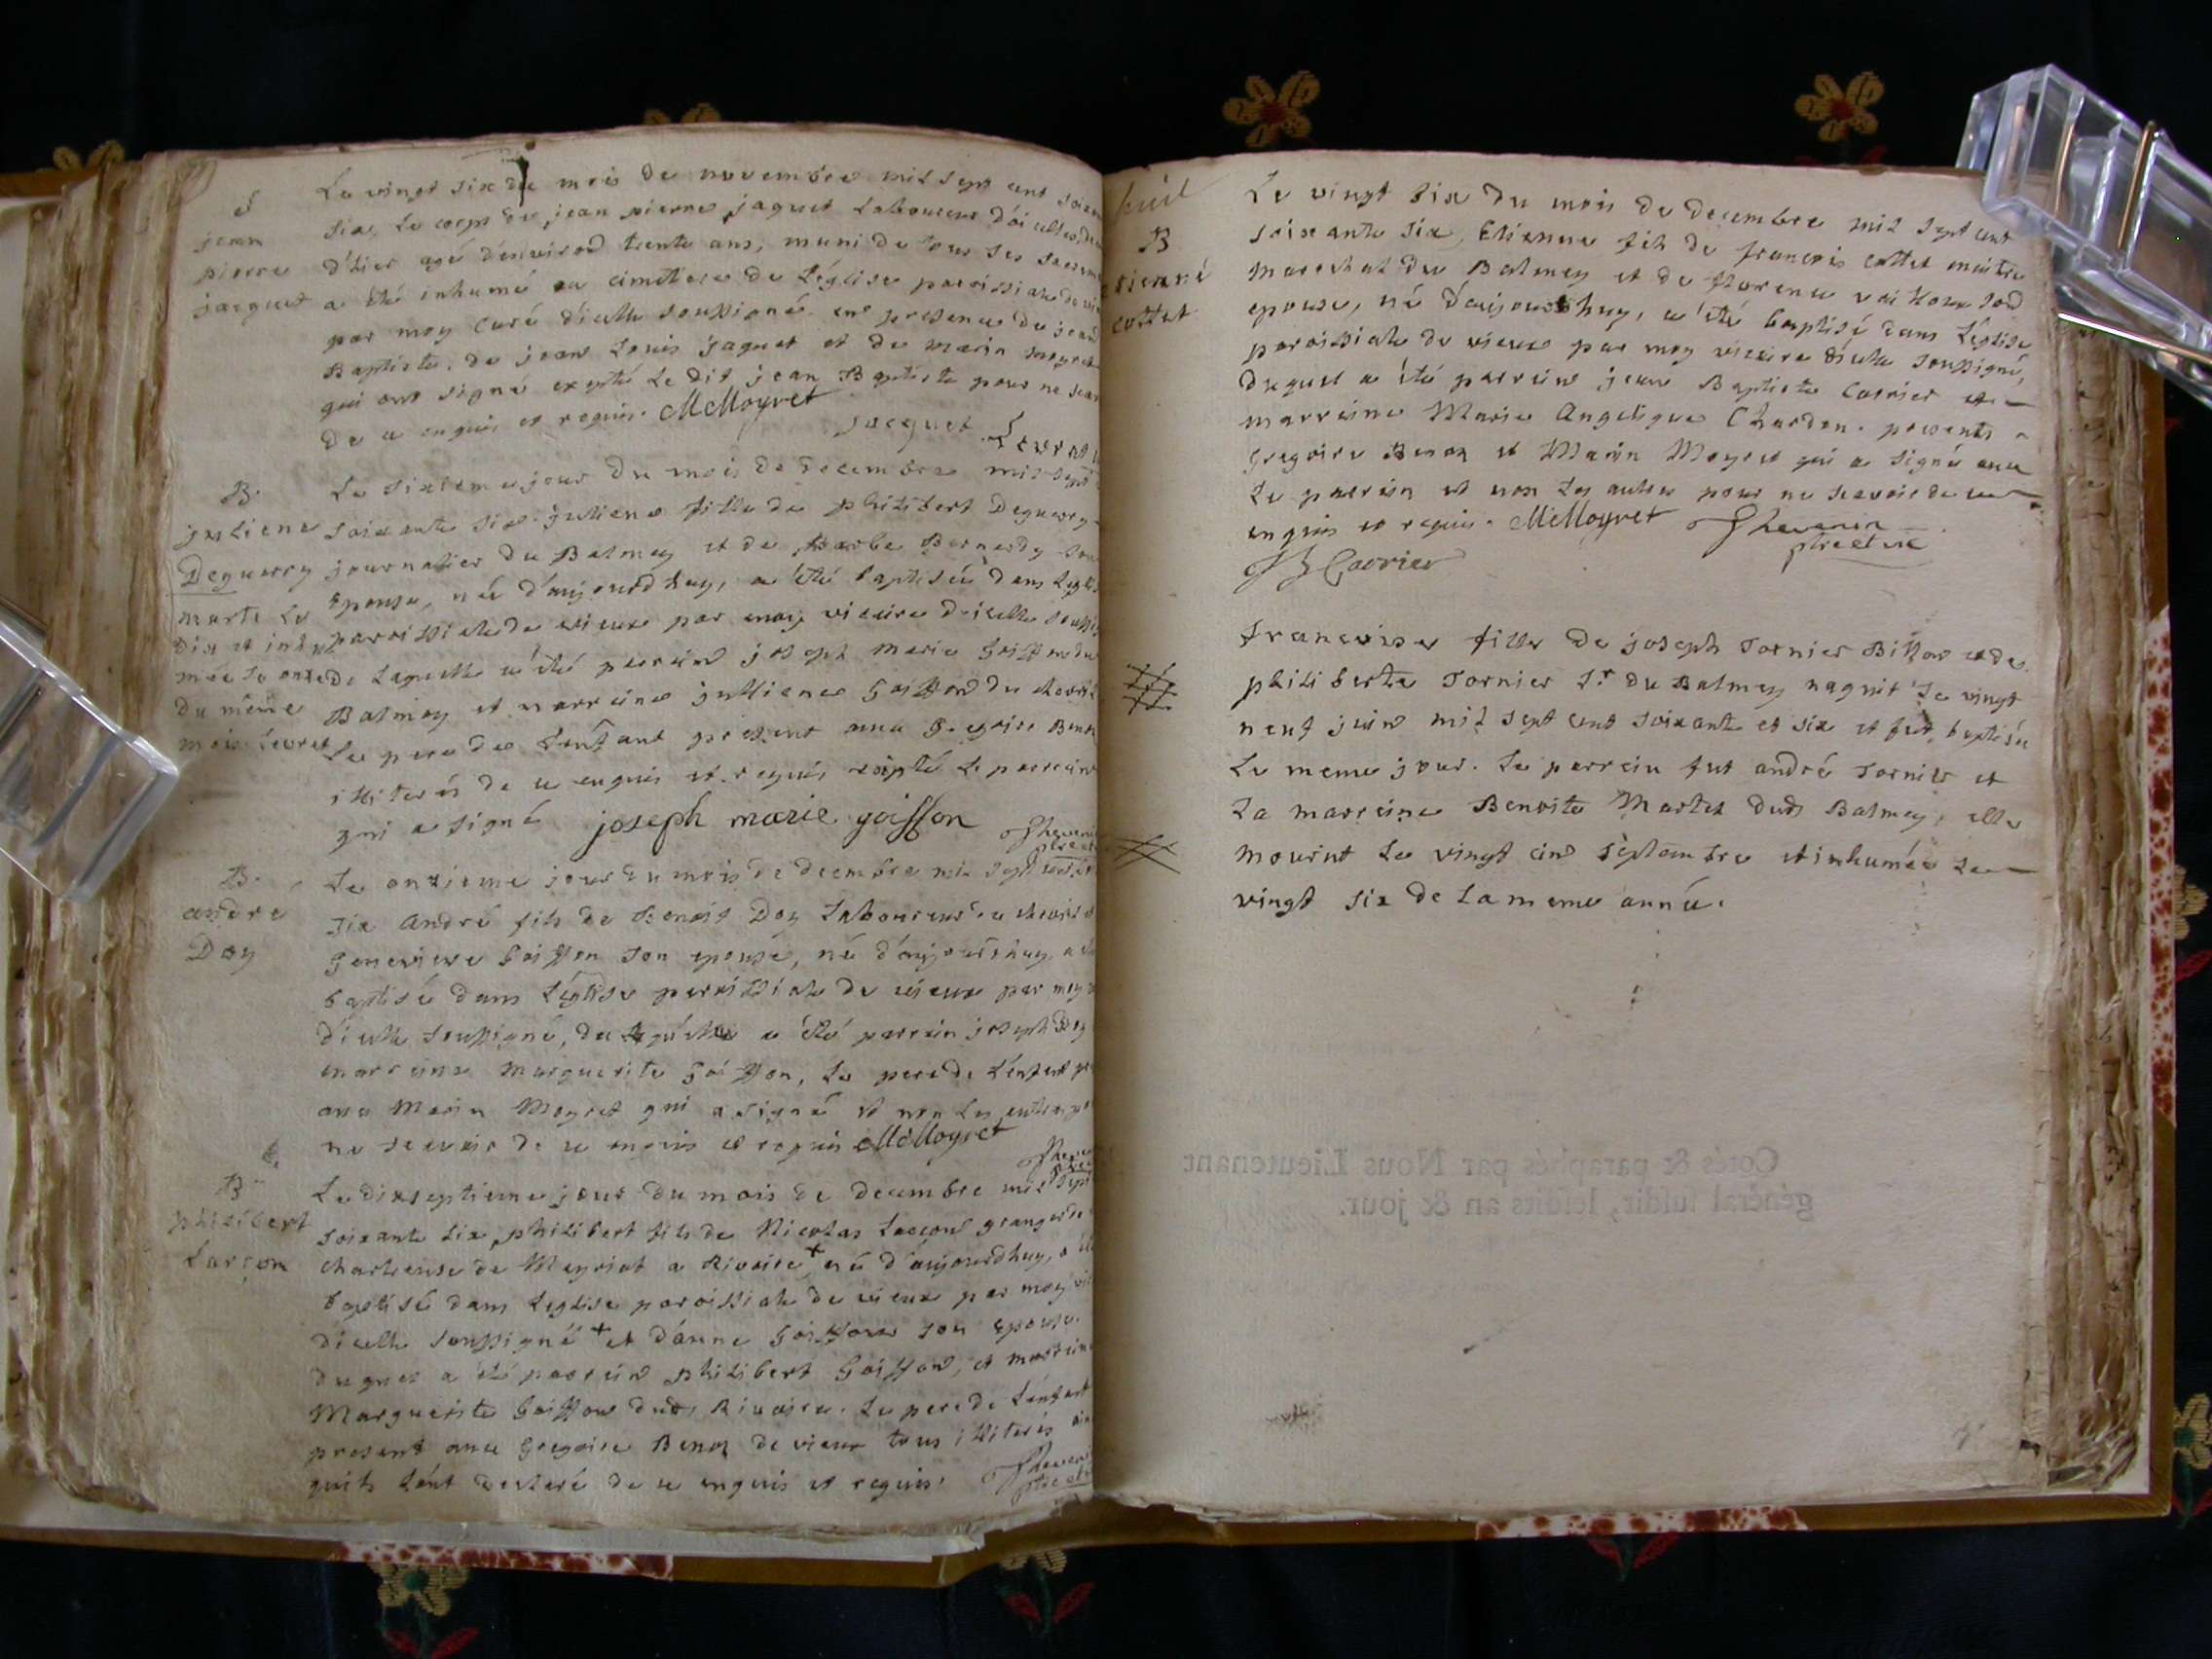 S
jean
pierre
jacquet
Le vingt six du mois de novembre mil sept cent
six, Le corps de jean pierre jaquet Laboureur d'icelles,
d'hier agé d'environ trente ans, muni de tous ses
a été inhumé au cimetiere de L'église paroissiale de
par moy Curé d'icelle soussigné en presence de jean
Baptiste, de jean Louis jaquet et de Marin Moyret
qui ont signé exepté Le dit jean Baptiste pour ne
de ce enquis et requis. MMoyret
jacquet
B.
juliene
Deguerry
morte Le
dix et inhu
mée Le onze
du même
mois. Levrat
Le sixieme jour du mois de decembre mil sept
soixante six. juliene fille de philibert Deguerry
journalier du Balmey et de Barbe Bernardy
Epouse, née d'aujourdhuy, a été baptisée dans
paroissiale de vieux par moy vicaire d'icelle
de Laquelle a été parrain joseph marie Goiffon du
Balmey et marreine jullienne Goiffon du
Le pere de L'enfant present avec Gregoire Benoz
illiterés de ce enquis et requis exepté Le parrein
qui a signé joseph marie goiffon
Thevenin
B.
andre
Doy
Le onzieme jour du mois de decembre mil sept
six André fils de Benoit Doy Laboureur
Genevieve Goiffon son epouse, né d'aujourdhuy, a
baptisé dans L'église paroissiale de vieux par moy
d'icelle soussigné, a été parrein joseph Doy
marreine Marguerite Goiffon, Le pere de L'enfant
avec Marin Moyret qui a signé et non Les autres
ne scavoir de ce enquis et requis MMoyret
B
philibert
Larçon
Le dixseptieme jour du mois de decembre mil sept
soixante six, philibert fils de Nicolas Larçon granger
chartreuse de Meyriat a Rivoire + né d'aujourdhuy, a
baptisé dans L'eglise paroissiale de vieux par moy
d'icelle soussigné + et d'anne Goiffon son epouse.
duquel a été parrein philibert Goiffon, et
Marguerite Goiffon dud. Rivoire. Le pere de L'enfant
present avec Gregoire Benoz de vieux tous illiterés
quils L'ont declaré de ce enquis et requis.
B
Etienne
cottet
Le vingt six du mois de decembre mil sept cent
soixante six, Etienne fils de francois cottet maitre
Marechal du Balmey et de florence son
epouse, né d'aujourdhuy, a été baptisé dans L'église
paroissiale de vieux par moy vicaire d'icelle soussigné,
duquel a été parrein jean Baptiste Carrier et
marreine Marie Angelique Chardon. presents
Gregoire Benoz et Marin Moyret qui a signé avec
Le parrein et non Les autres pour ne scavoir de ce
enquis et requis. MMoyret Thevenin
JB Carrier
francoise fille de joseph Tornier Billon et de
philiberte Tornier du Balmey naquit Le vingt
neuf juin mil sept cent soixante et six et fut baptisée
Le meme jour. Le parrein fut andré Tornier et
La marreine Benoite Martel dud. Balmey, elle
mourut Le vingt cinq septembre et inhumée Le
vingt six de La meme année.
Cotés & paraphés par Nous Lieutenant
général susdit, lesdits an & jour.